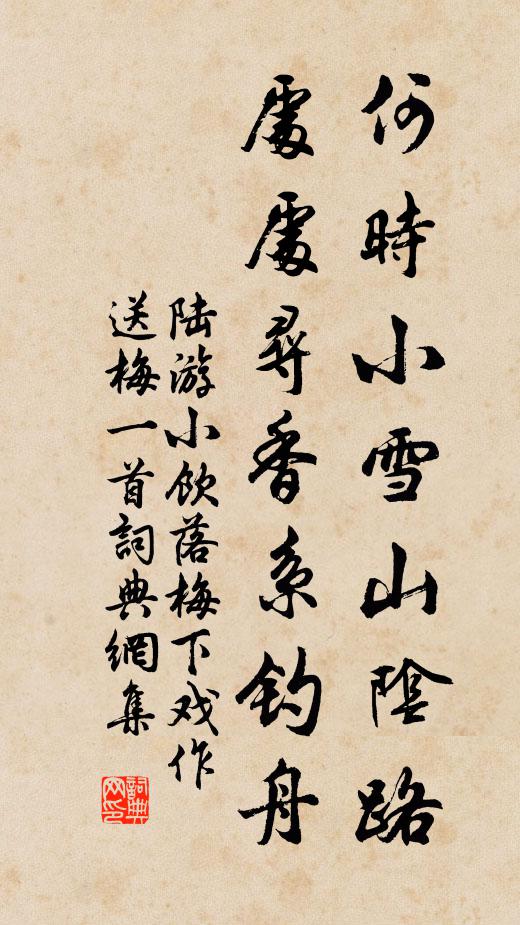 何時小雪山陰路
處處尋香系釣舟
陆游小飲落梅下戏作
送梅一首詞典網集
詞典网印